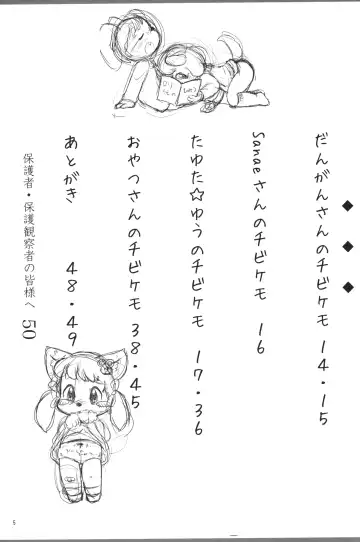 だんがんさんのチビケモ 14・15
Sanaeさんのチビケモ 16
たゆた☆ゆうのチビケモ 17・36
おやつさんのチビケモ 38・45
あとがき 48・49
保護者・保護観察者の皆様へ 50
5